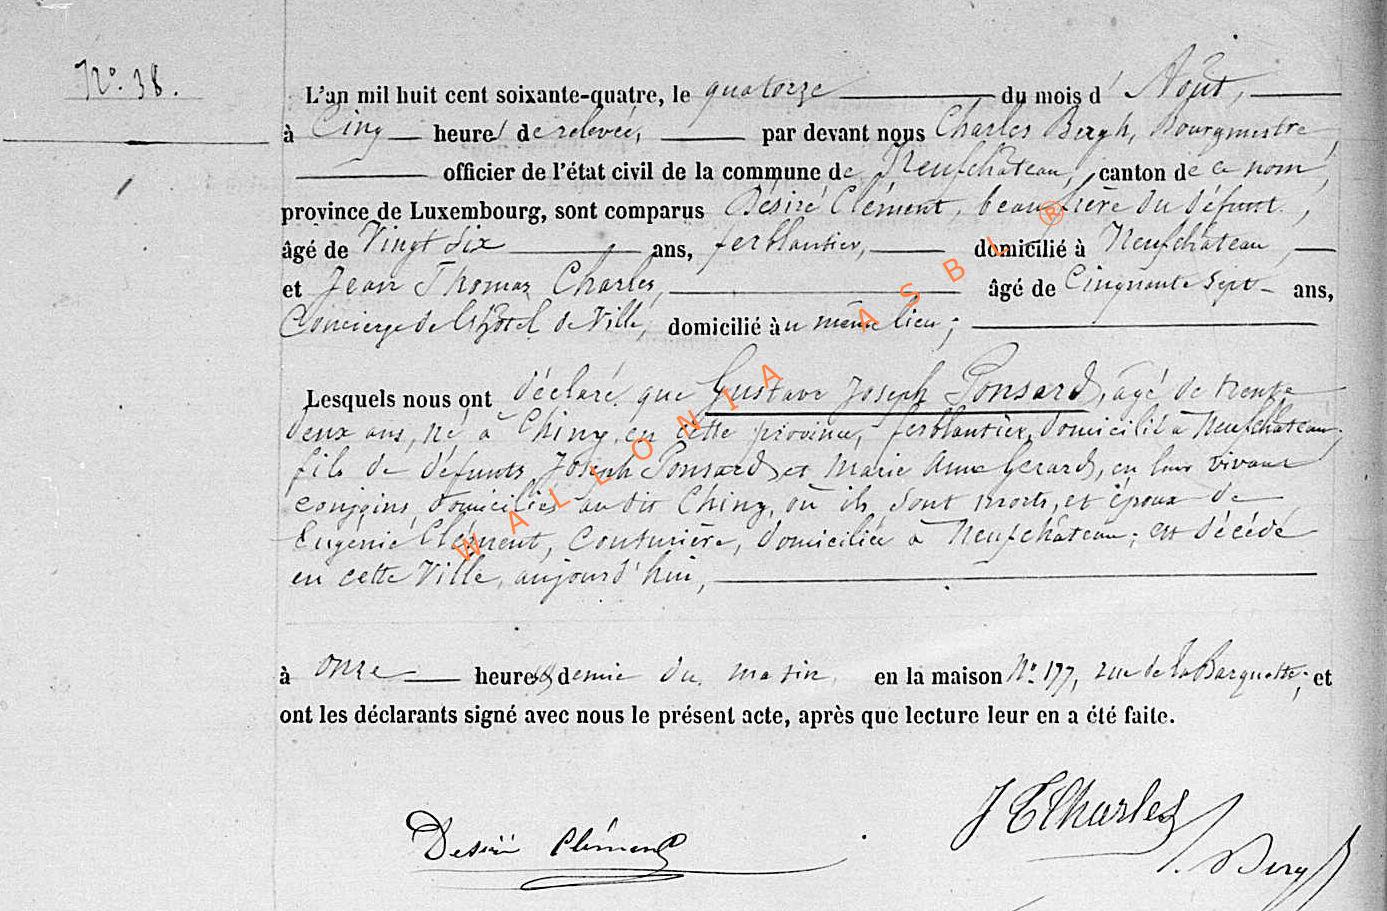 N° 38.
L'an mil huit cent soixante-quatre, le quatorze du mois d'Août,
à Cinq heures de relevée, par devant nous Charles Bergh, Bourgmestre
officier de l'état civil de la commune de Neufchâteau, canton de ce nom,
province de Luxembourg, sont comparus Désiré Clément, beau frère du défunt,
âgé de Vingt Six ans, ferblantier, domicilié à Neufchâteau,
et Jean Thomas Charles, âgé de Cinquante Sept ans,
Concierge de l'hôtel de Ville, domicilié au même lieu ;
Lesquels nous ont déclaré que Gustave Joseph Ponsard, âgé de trente
deux ans, né à Chiny, en cette province, ferblantier, domicilié à Neufchâteau,
fils de défunts Joseph Ponsard et Marie Anne Gerard, en leur vivant
conjoins, domiciliés au dit Chiny, où ils sont morts, et époux de
Eugénie Clément, Couturière, domiciliée à Neufchâteau ; est décédé
en cette Ville, aujourd'hui,
à onze heures & demie du matin en la maison N° 177, rue de la Barquette ; et
ont les déclarants signé avec nous le présent acte, après que lecture leur en a été faite.
Desiré Clément
J T Charles
Bergh
WALLONIA ASBL ®